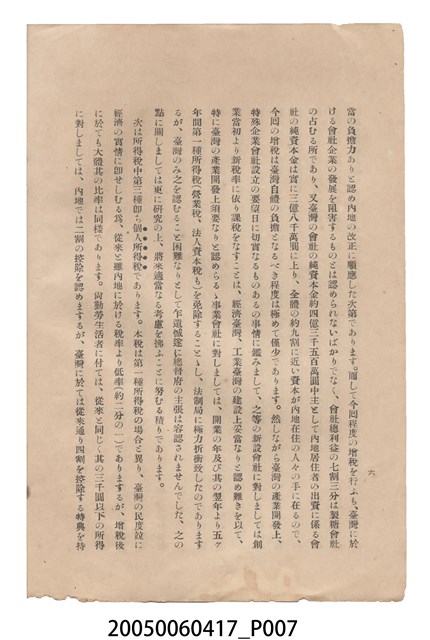 六
當の負擔力ありと認め內地の改正に順應した次第であります。而して今囘程度の增稅を行ふも、臺灣に於
ける會社企業の發展を阻害するものとは認められないばかりでなく、會社總利益の七割三分は製糖會社
の占むる所であり、又臺灣の會社の純資本金約四億三千五百萬圓中主として內地居住者の出資に係る會
社の純資本金は實に三億八千萬圓に上り、全體の約九割に近い資本が內地在住の人々の手に在るので、
今囘の增稅は臺灣自體の負擔となるべき程度は極めて僅少であります。然しながら臺灣の產業開發上、
特殊企業會社設立の要望日に切實なるものあるの事情に鑑みまして、之等の新設會社に對しましては創
業當初より新稅率に依り課稅をなすことは、經濟臺灣、工業臺灣の建設上妥當なりと認め難きを以て、
特に臺灣の產業開發上須要なりと認めらるゝ事業會社に對しましては、開業の年及び其の翌年より五ヶ
年間第一種所得稅(營業稅、法人資本稅も)を免除することゝし、法制局に極力折衝致したのであります
るが、臺灣のみ之を認むること困難なりとして乍遺憾遂に總督府の主張は容認されませんでした、之の
點に關しましては更に硏究の上、將來適當なる考慮を拂ふことに努むる積りであります。
次は所得稅中第三種卽ち個人所得稅であります。本稅は第一種所得稅の場合と異り、臺灣の民度竝に
經濟の實情に卽せしむる爲、從來と雖內地に於ける稅率より低率(約二分の一)でありまするが、增稅後
に於ても大體其の比率は同樣であります。尙勤勞生活者に付ては、從來と同じく其の三千圓以下の所得
に對しましては、內地では二割の控除を認めまするが、臺灣に於ては從來通り四割を控除する特典を持
20050060417_P007